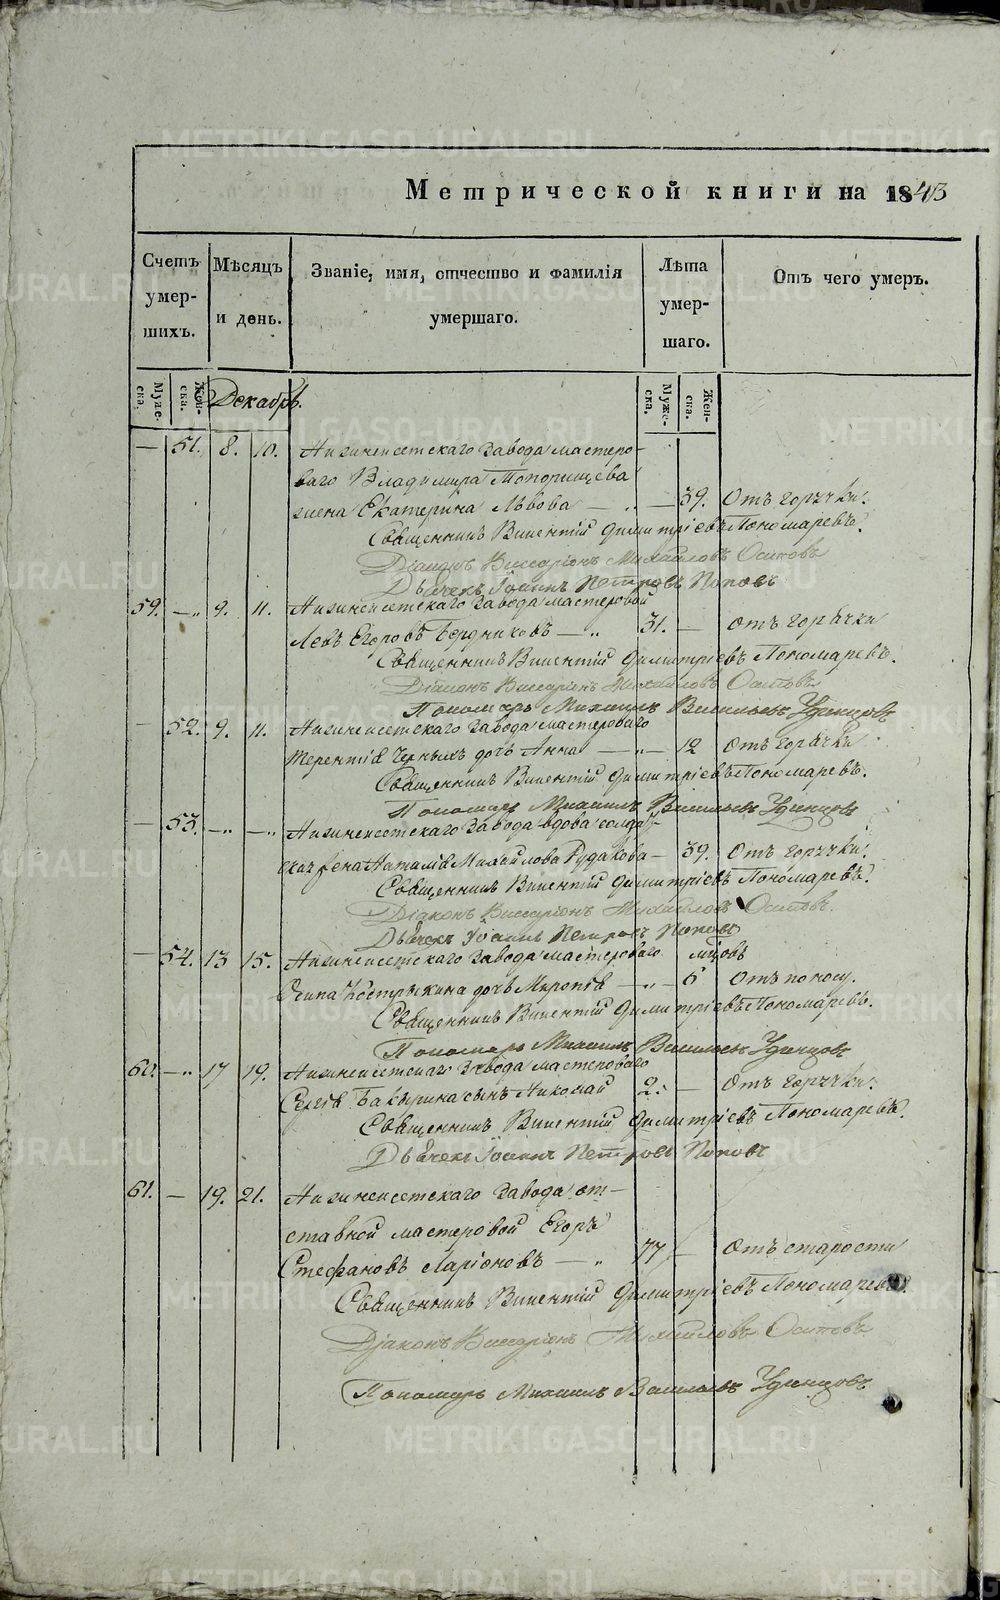 Метрической книги на 1843
Счетъ умер-шихъ. Мѣсяцъ и день. Званіе, имя, отчество и фамилія умершаго. Лѣта умер-шаго. Отъ чего умеръ.
Муже-ска. Жен-ска. Декабрь. Муже-ска. Жен-ска.
— 51. 8. 10. Нижнеисетскаго Завода мастеро-
ваго Владимира Топорищева
жена Екатерина Львова — „ — 39. Отъ горячки.
Священникъ Викентій Димитріевъ Пономаревъ.
Діаконъ Виссаріонъ Михайловъ Осиповъ
Дьячекъ Іоаннъ Петровъ Поповъ
59. — „ 9. 11. Нижнеисетскаго Завода мастеровой
Левъ Егоровъ Бердниковъ — „ 31. — Отъ горячки
Священникъ Викентій Димитріевъ Пономаревъ.
Діаконъ Виссаріонъ Михайловъ Осиповъ
Пономарь Михаилъ Васильевъ Удинцовъ
— 52. 9. 11. Нижнеисетскаго Завода мастероваго
Терентія Черныхъ дочь Анна — „ — 12 Отъ горячки
Священникъ Викентій Димитріевъ Пономаревъ.
Пономарь Михаилъ Васильевъ Удинцовъ
— 53. — „ — „ Нижнеисетскаго Завода вдова солдат-
ская жена Наталія Михайлова Рудакова — 39. Отъ горячки.
Священникъ Викентій Димитріевъ Пономаревъ.
Діаконъ Виссаріонъ Михайловъ Осиповъ.
Дьячекъ Іоаннъ Петровъ Поповъ
— 54. 13 15. Нижнеисетскаго Завода мастероваго мѣцовъ
Осипа Костры́кина дочь Миропія — „ — 6 Отъ поносу.
Священникъ Викентій Димитріевъ Пономаревъ.
Пономарь Михаилъ Васильевъ Удинцовъ
60. — „ 17 19. Нижнеисетскаго Завода мастероваго
Сергія Бакѣрина сынъ Николай 2. — Отъ горячки.
Священникъ Викентій Димитріевъ Пономаревъ.
Дьячекъ Іоаннъ Петровъ Поповъ
61. — 19. 21. Нижнеисетскаго Завода от-
ставной мастеровой Егоръ
Стефановъ Ларіоновъ — „ 77 — Отъ старости
Священникъ Викентій Димитріевъ Пономаревъ.
Діаконъ Виссаріонъ Михайловъ Осиповъ
Пономарь Михаилъ Васильевъ Удинцовъ
METRIKI.GASO-URAL.RU